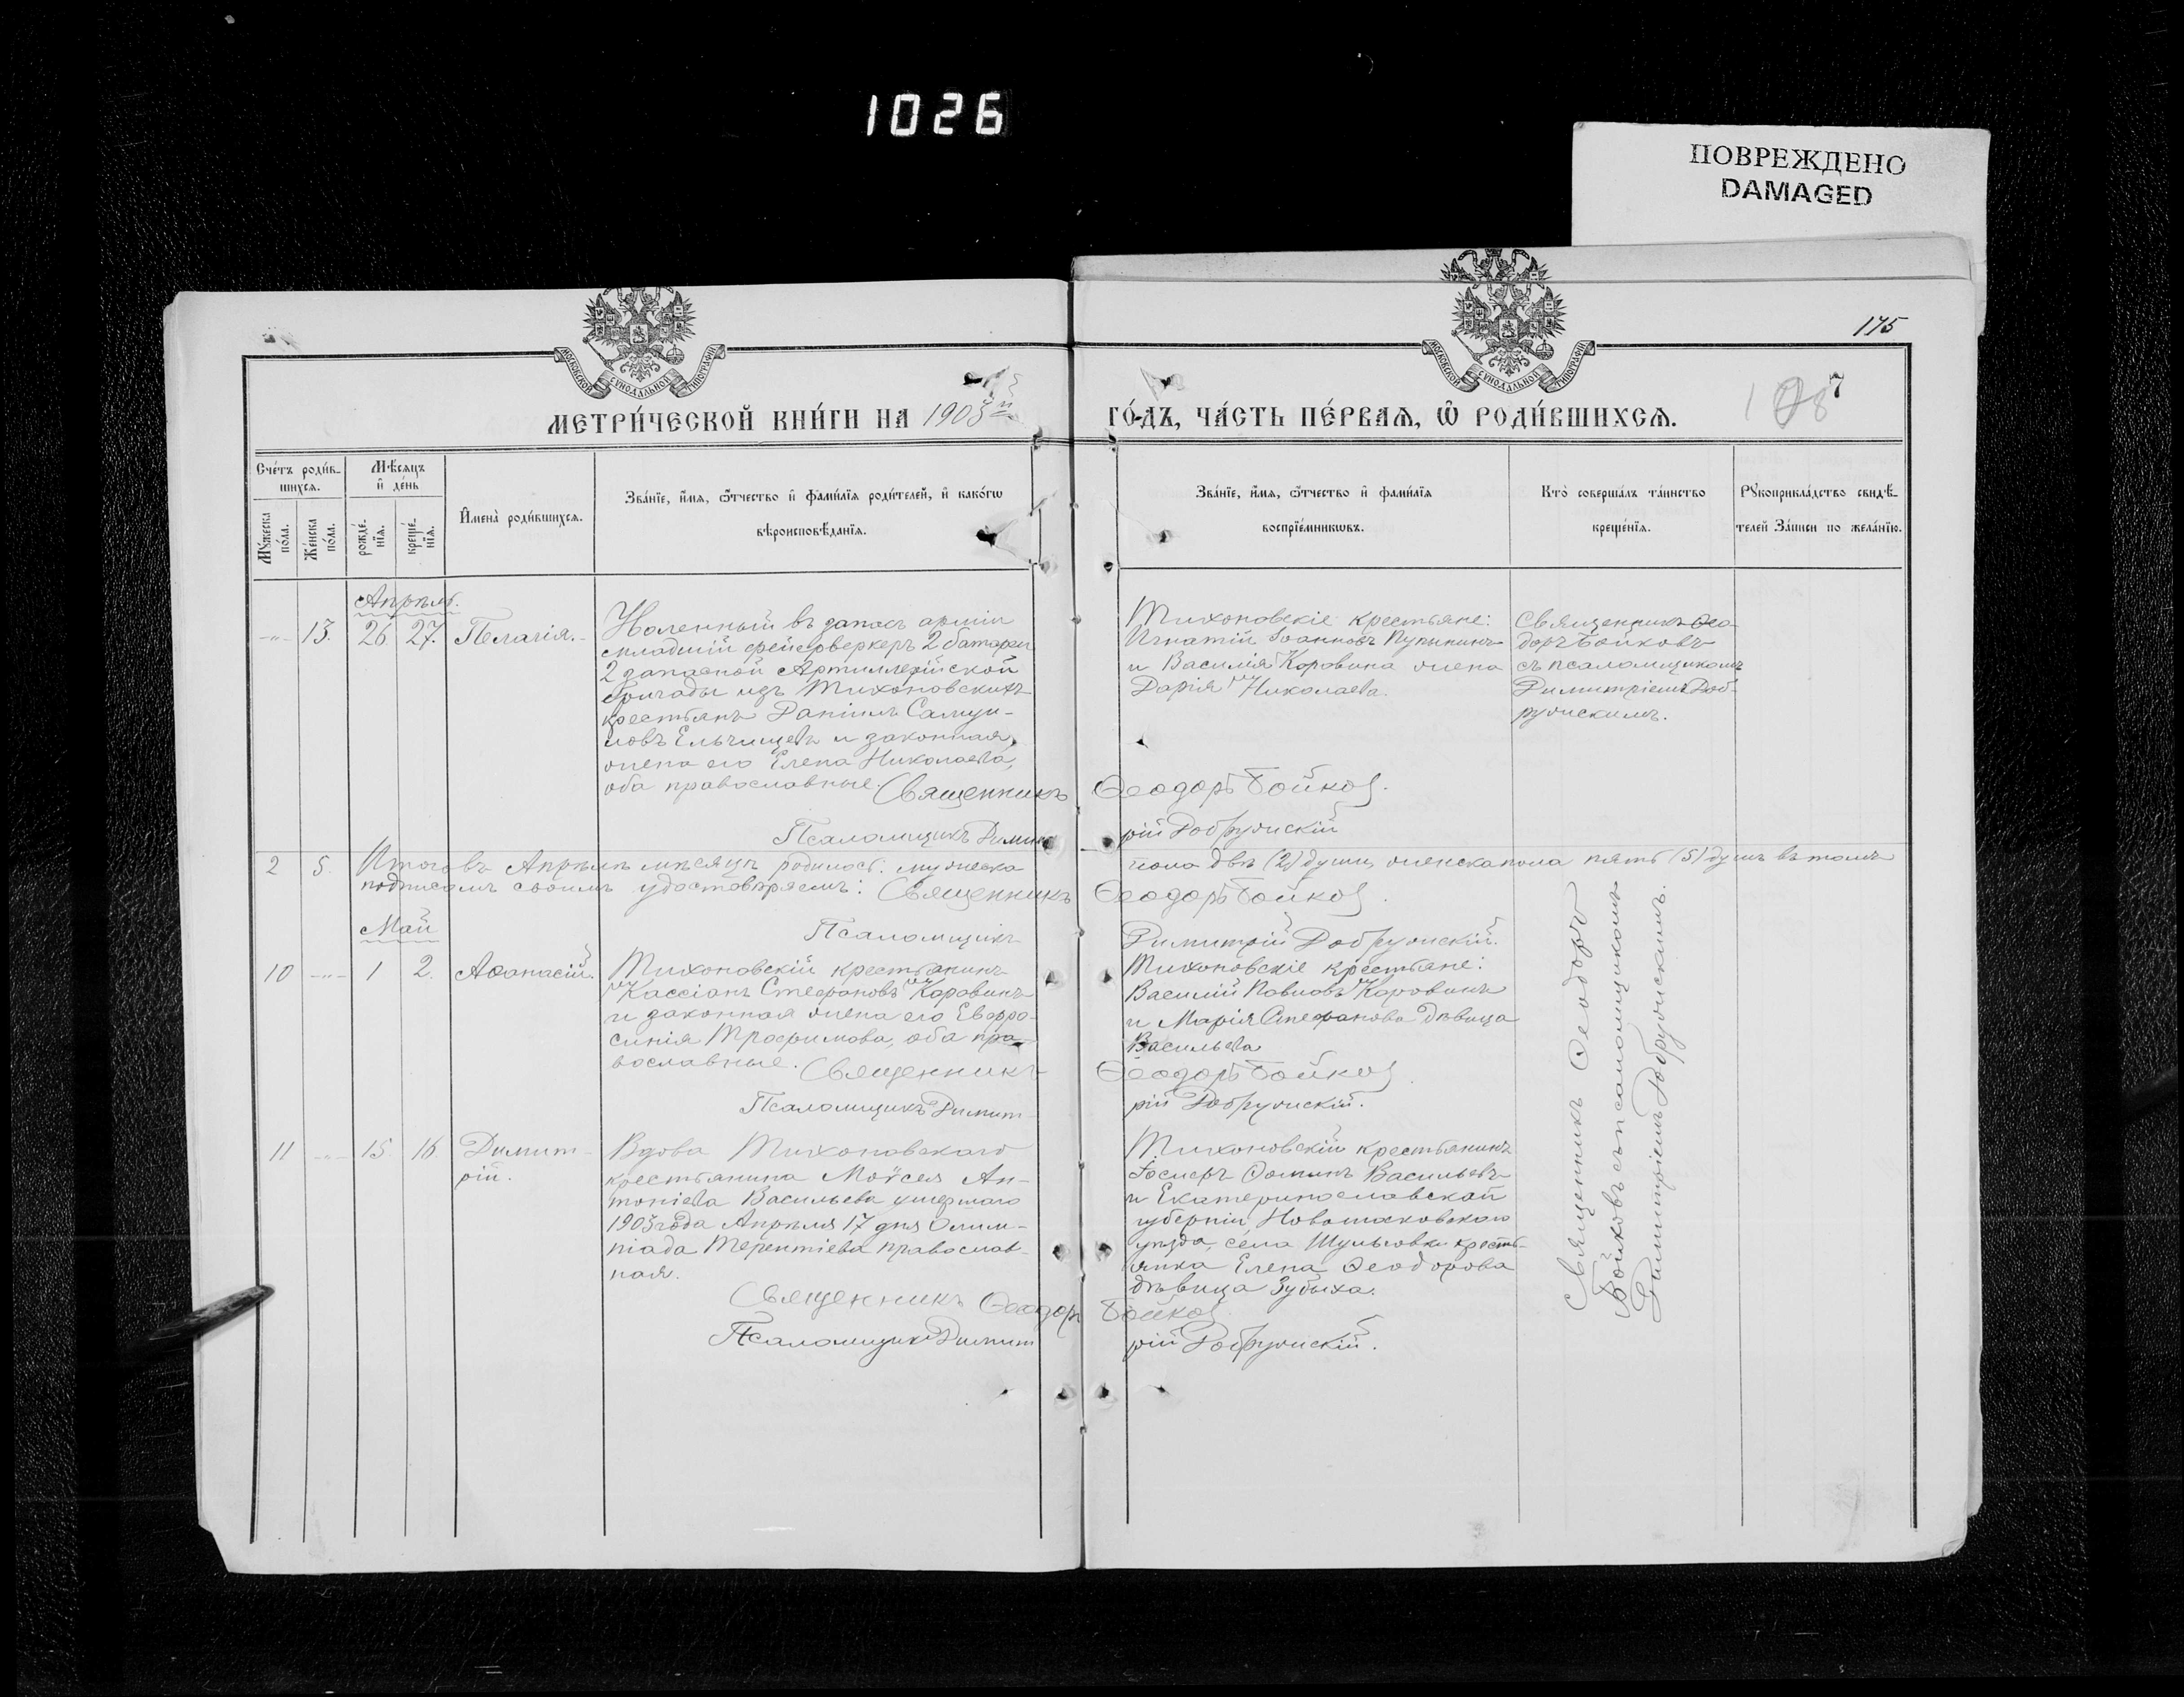 1026
ПОВРЕЖДЕНО
DAMAGED
175
МОСКОВСКОЙ СѴНОДАЛЬНОЙ ТИПОГРАФІИ
МОСКОВСКОЙ СѴНОДАЛЬНОЙ ТИПОГРАФІИ
МЕТРИ́ЧЕСКОЙ КНИ́ГИ НА 1903й ГО́ДЪ, ЧА́СТЬ ПЕ́РВАѦ, Ѡ҆ РОДИ́ВШИХСѦ.
7
Сче́тъ роди́в-
шихсѧ.
Мѣ́сѧцъ
и҆ де́нь
Мꙋ́жеска по́ла.
Же́нска по́ла.
рожде́-
нїѧ.
креще́-
нїѧ.
И҆мена̀ роди́вшихсѧ.
Зва́нїе, и҆́мѧ, ѻ҆́тчество и҆ фами́лїѧ роди́телей, и҆ како́гѡ
вѣроисповѣ́данїѧ.
Зва́нїе, и҆́мѧ, ѻ҆́тчество и҆ фами́лїѧ
воспрїе́мникѡвъ.
Кто̀ соверша́лъ та́инство
креще́нїѧ.
Рꙋкоприкла́дство свидѣ́-
телей За́писи по жела́нїю.
Апрѣль.
-"- 13. 26. 27. Пелагія.-
Уволенный въ запасъ арміи
младшій фейерверкеръ 2 батареи
2 запасной Артиллерійской
бригады изъ Тихоновскихъ
крестьянъ Даніилъ Самуи-
ловъ Ельчищевъ и законная
жена его Елена Николаева,
оба православные. Священникъ Ѳеодоръ Бойковъ.
Псаломщикъ Димитрій Добружскій
Тихоновскіе крестьяне:
Игнатій Іоанновъ Пупынинъ
и Василія Коровина жена
Дарія Николаева.
Священникъ Ѳео-
доръ Бойковъ
съ псаломщикомъ
Димитріемъ Доб-
ружскимъ.
2 5. Итого въ Апрѣлѣ мѣсяцѣ родилось: мужеска пола двѣ (2) души, женска пола пять (5) душъ въ томъ
подписомъ своимъ удостовѣряемъ: Священникъ Ѳеодоръ Бойковъ.
Псаломщикъ Димитрій Добружскій.
Май
10 -"- 1 2. Аѳанасій.
Тихоновскій крестьянинъ
Кассіанъ Стефановъ Коровинъ
и законная жена его Евфро-
синія Трофимова, оба пра-
вославные. Священникъ Ѳеодоръ Бойковъ
Псаломщикъ Димитрій Добружскій.
Тихоновскіе крестьяне:
Василій Павловъ Коровинъ
и Марія Стефанова дѣвица
Васильева
11 -"- 15. 16. Димит-
рій.
Вдова Тихоновскаго
крестьянина Моѵсея Ан-
тоніева Васильева умершаго
1903 года Апрѣля 17 дня Олим-
піада Терентіева православ-
ная.
Священникъ Ѳеодоръ Бойковъ
Псаломщикъ Димитрій Добружскій.
Тихоновскій крестьянинъ
Іосифъ Ѳоминъ Васильевъ
и Екатеринославской
губерніи, Новомосковскаго
уѣзда, села Шульговки кресть-
янка Елена Ѳеодорова
дѣвица Зубыха.
Священникъ Ѳеодоръ
Бойковъ съ псаломщикомъ
Димитріемъ Добружскимъ.